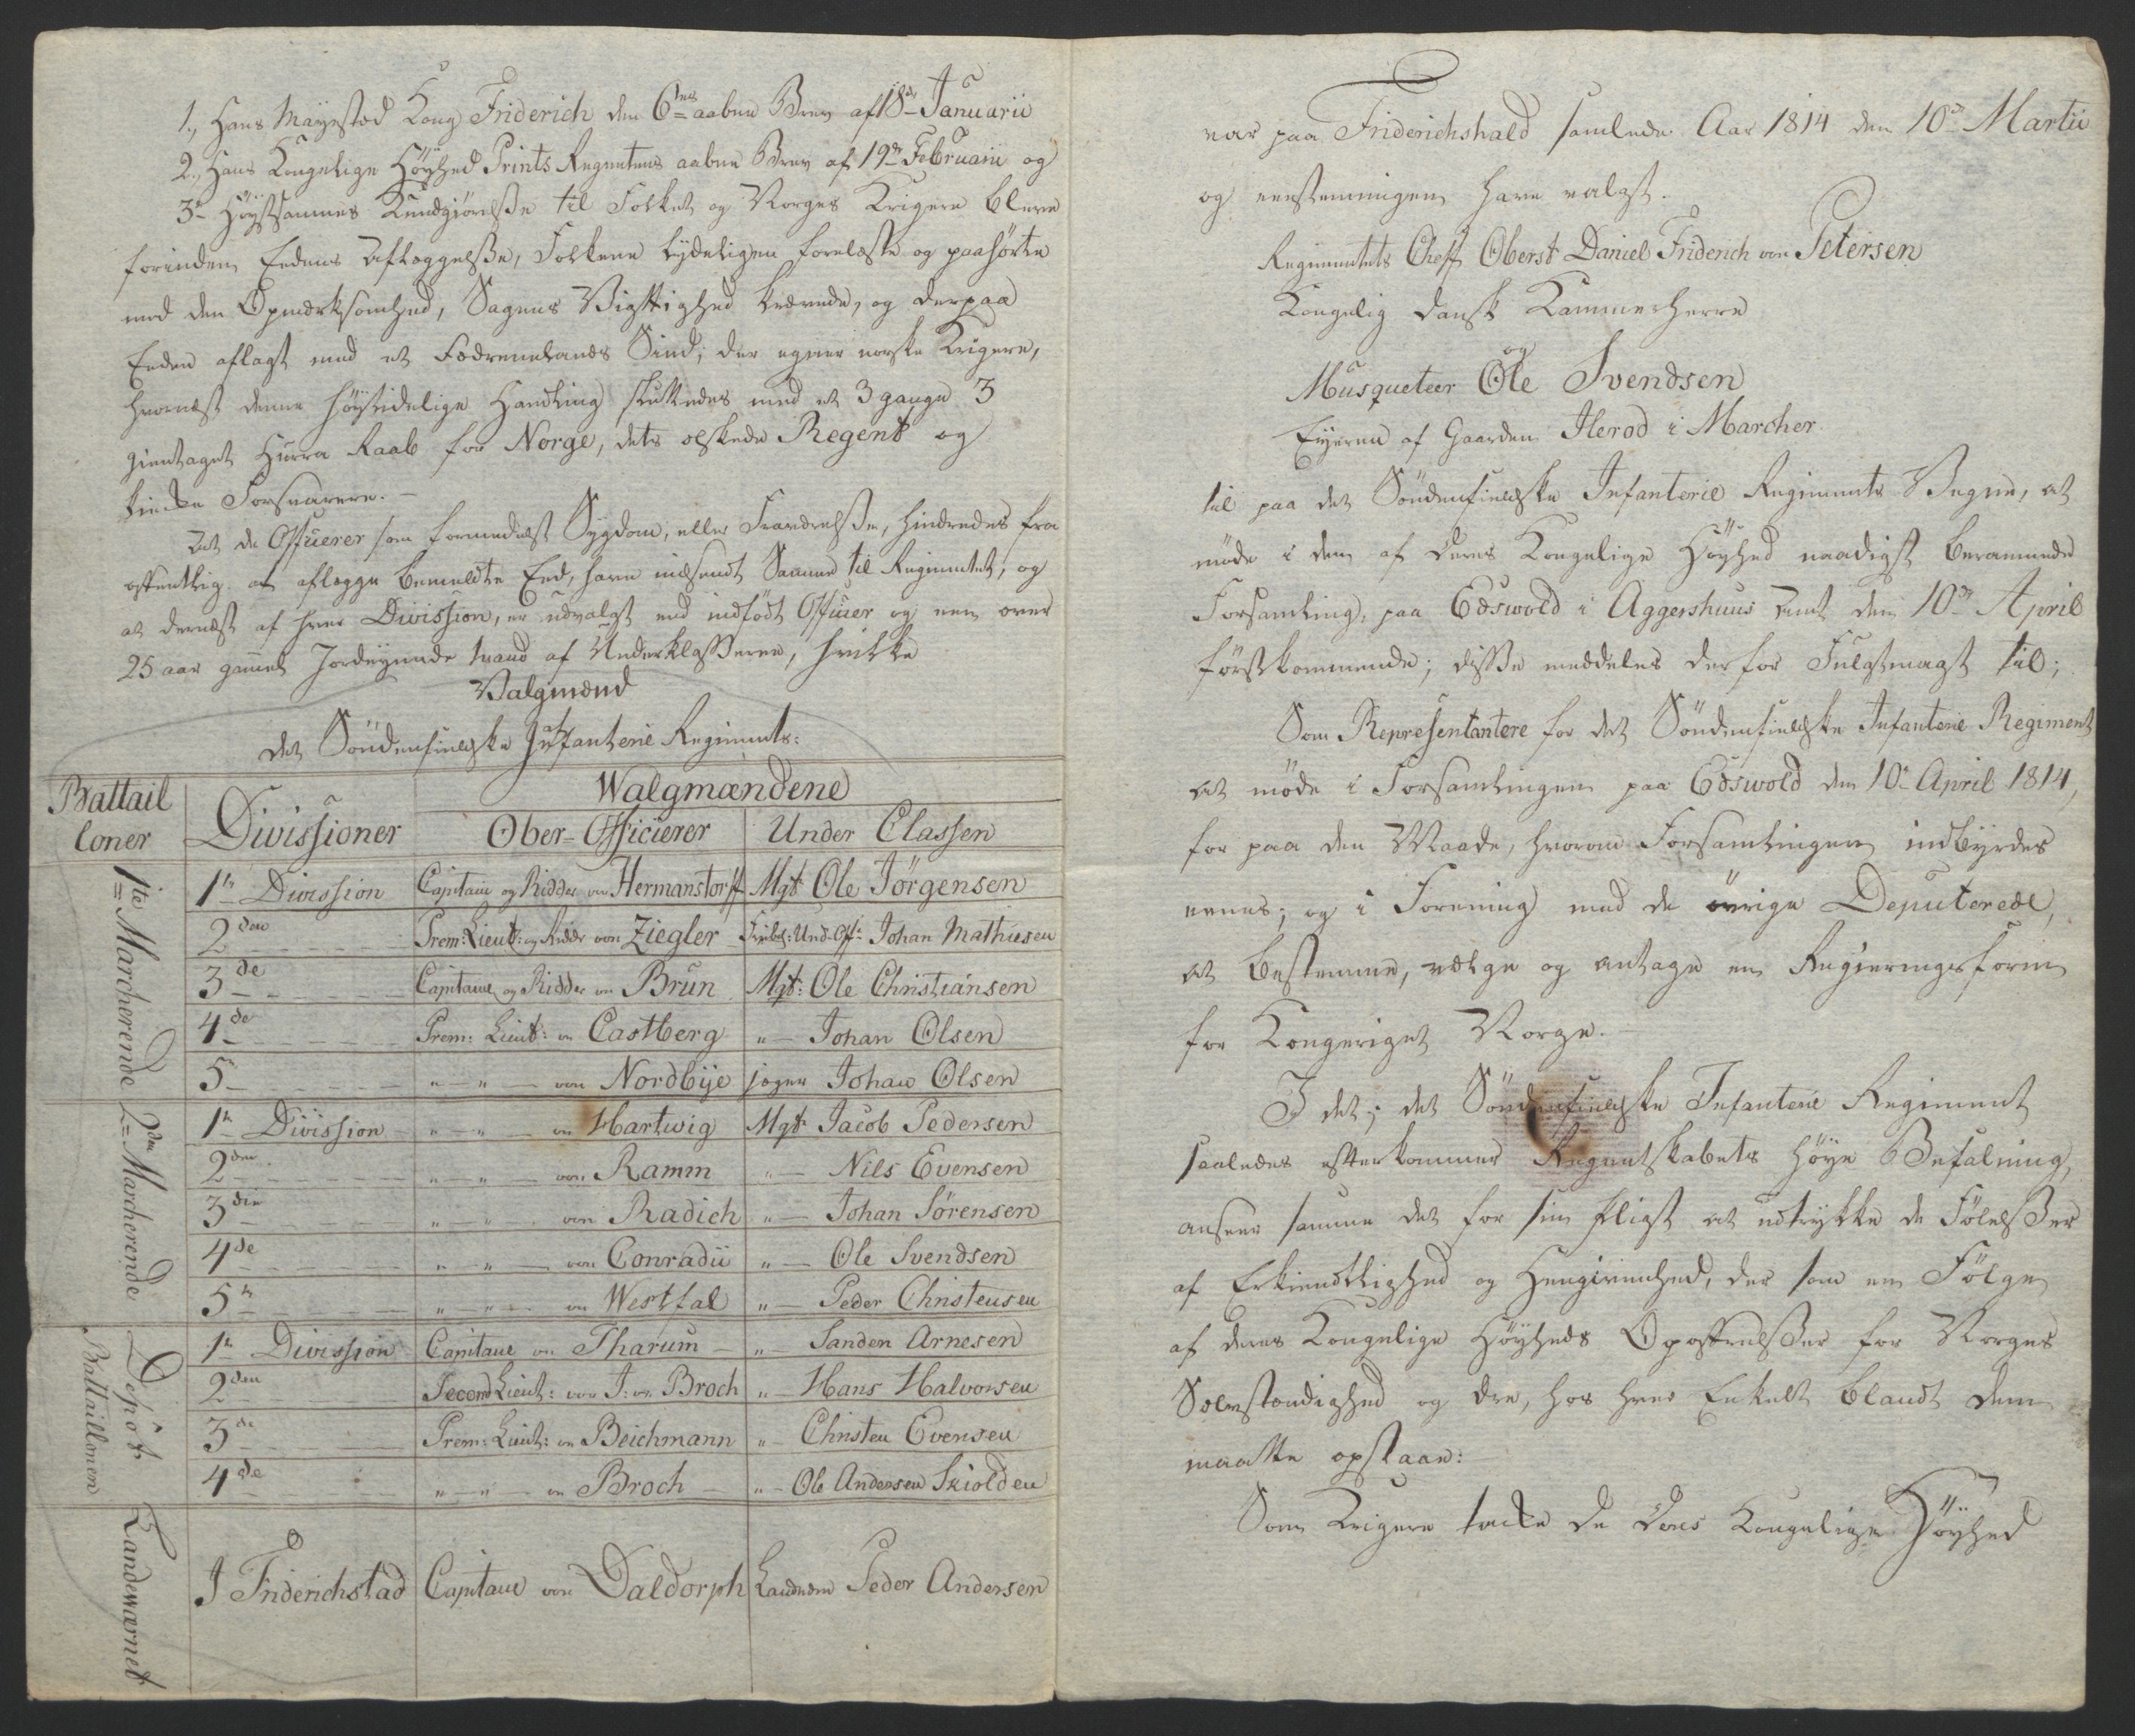 1., Hans Mayestæd Kong Friderich den 6tes aabne Brev af 18de Januarii
2., Hans Kongelige Höyhed Prints Regentens aabne Brev af 19de Februarii og
3- Höystsammes Kundgiörelsse til Folket og Norges Krigere bleve
forinden Eedens Aflæggelsse, Folkene tydeligen forelæste og paahörte
med den Opmærksomhed, Sagens Vigttighed krævede, og derpaa
Eeden aflagt med et Fædrenelands Sind, der egner norske Krigere,
hvornæst denne höytidelige Handling sluttedes med et 3 gange 3
gientaget Hurra Raab for Norge, dets elskede Regent og
kiække Forsvarere. -
At de Officerer som formedelst Sygdom, eller Fraværelsse, hindredes fra
offentlig at aflægge bemeldte Eed, have indsendt Samme til Regimentet, og
at dernæst af hver Divission, er udvalgt end indfödt Officer og een over
25 aar gammel Jordeyende Mand af Underklasserne, hvilke
Valgmænd
det Söndenfieldske Infanterie Regiments:
Battail
loner
Divissioner
Walgmændene
Ober-Officierer
Under Classen
1te Marcherende
1te Divission Capitain og Ridder von Hermanstorff Mgt Ole Jörgensen
2den Prem: Lieut: og Ridder von Ziegler Und: Off: Johan Mathiesen
3de Capitaine og Ridder von Brun Mgt: Ole Christiansen
4de Prem: Lieut: von Castberg " - Johan Olsen
5te " - " - von Nordbye jæger Johan Olsen
2den Marcherende
1te Divission " - " - von Hartwig Mgt Jacob Pedersen
2den " - " - von Ramm " - Nils Evensen
3die " - " - von Radich " - Johan Sörensen
4de " - " - von Conradii " - Ole Svendsen
5te " - " - von Westfal " - Peder Christensen
Depôt
Battaillonen
1te Divission Capitaine von Tharum " - Sanden Arnesen
2den Second Lieut: von J: von Broch " - Hans Halvorsen
3de Prem: Lieut: von Beichmann " - Christen Evensen
4de " - " - von Broch " - Ole Andersen Skiolden
Landeværnet
I Friderichstad Capitaine von Daldorph Landværn Peder Andersen
var paa Friderichshald samlede Aar 1814 den 10de Martii
og eenstemmigen have valgt.
Regimentets Cheff Oberst Daniel Friderich von Petersen
Kongelig dansk Kammerherre
og
Musqueteer Ole Svendsen
Eyeren af Gaarden Nerod i Marcher.
til paa det Söndenfieldske Infanterie Regiments Vegne, at
möde i den af Deres Kongelige Höyhed naadigst berammede
Forsamling, paa Edswold i Aggershuus Amt den 10de April
förstkommende; disse meddeles derfor Fuldtmagt til;
Som Representantere for det Söndenfieldske Infanterie Regiment
at möde i Forsamlingen paa Edswold den 10de April 1814,
for paa den Maade, hvorom Forsamlingen indbyrdes
eenes; og i Forening med de övrige Deputerede,
at bestemme, vælge og antage en Regieringsform
for Kongeriget Norge. -
I det; det Söndenfieldske Infanterie Regiment
saaledes efterkommer Regentskabets höye Befalning,
anseer samme det for sin Pligt at udtrykke de Fölelsser
af Erkiendtlighed og Hengivenhed, der som en Fölge
af deres Kongelige Höyheds Opoffrelsser for Norges
Selvstændighed og Ære, hos hver Enkelt blandt dem
maatte opstaae:
Som Krigere takke de Deres Kongelige Höyhed